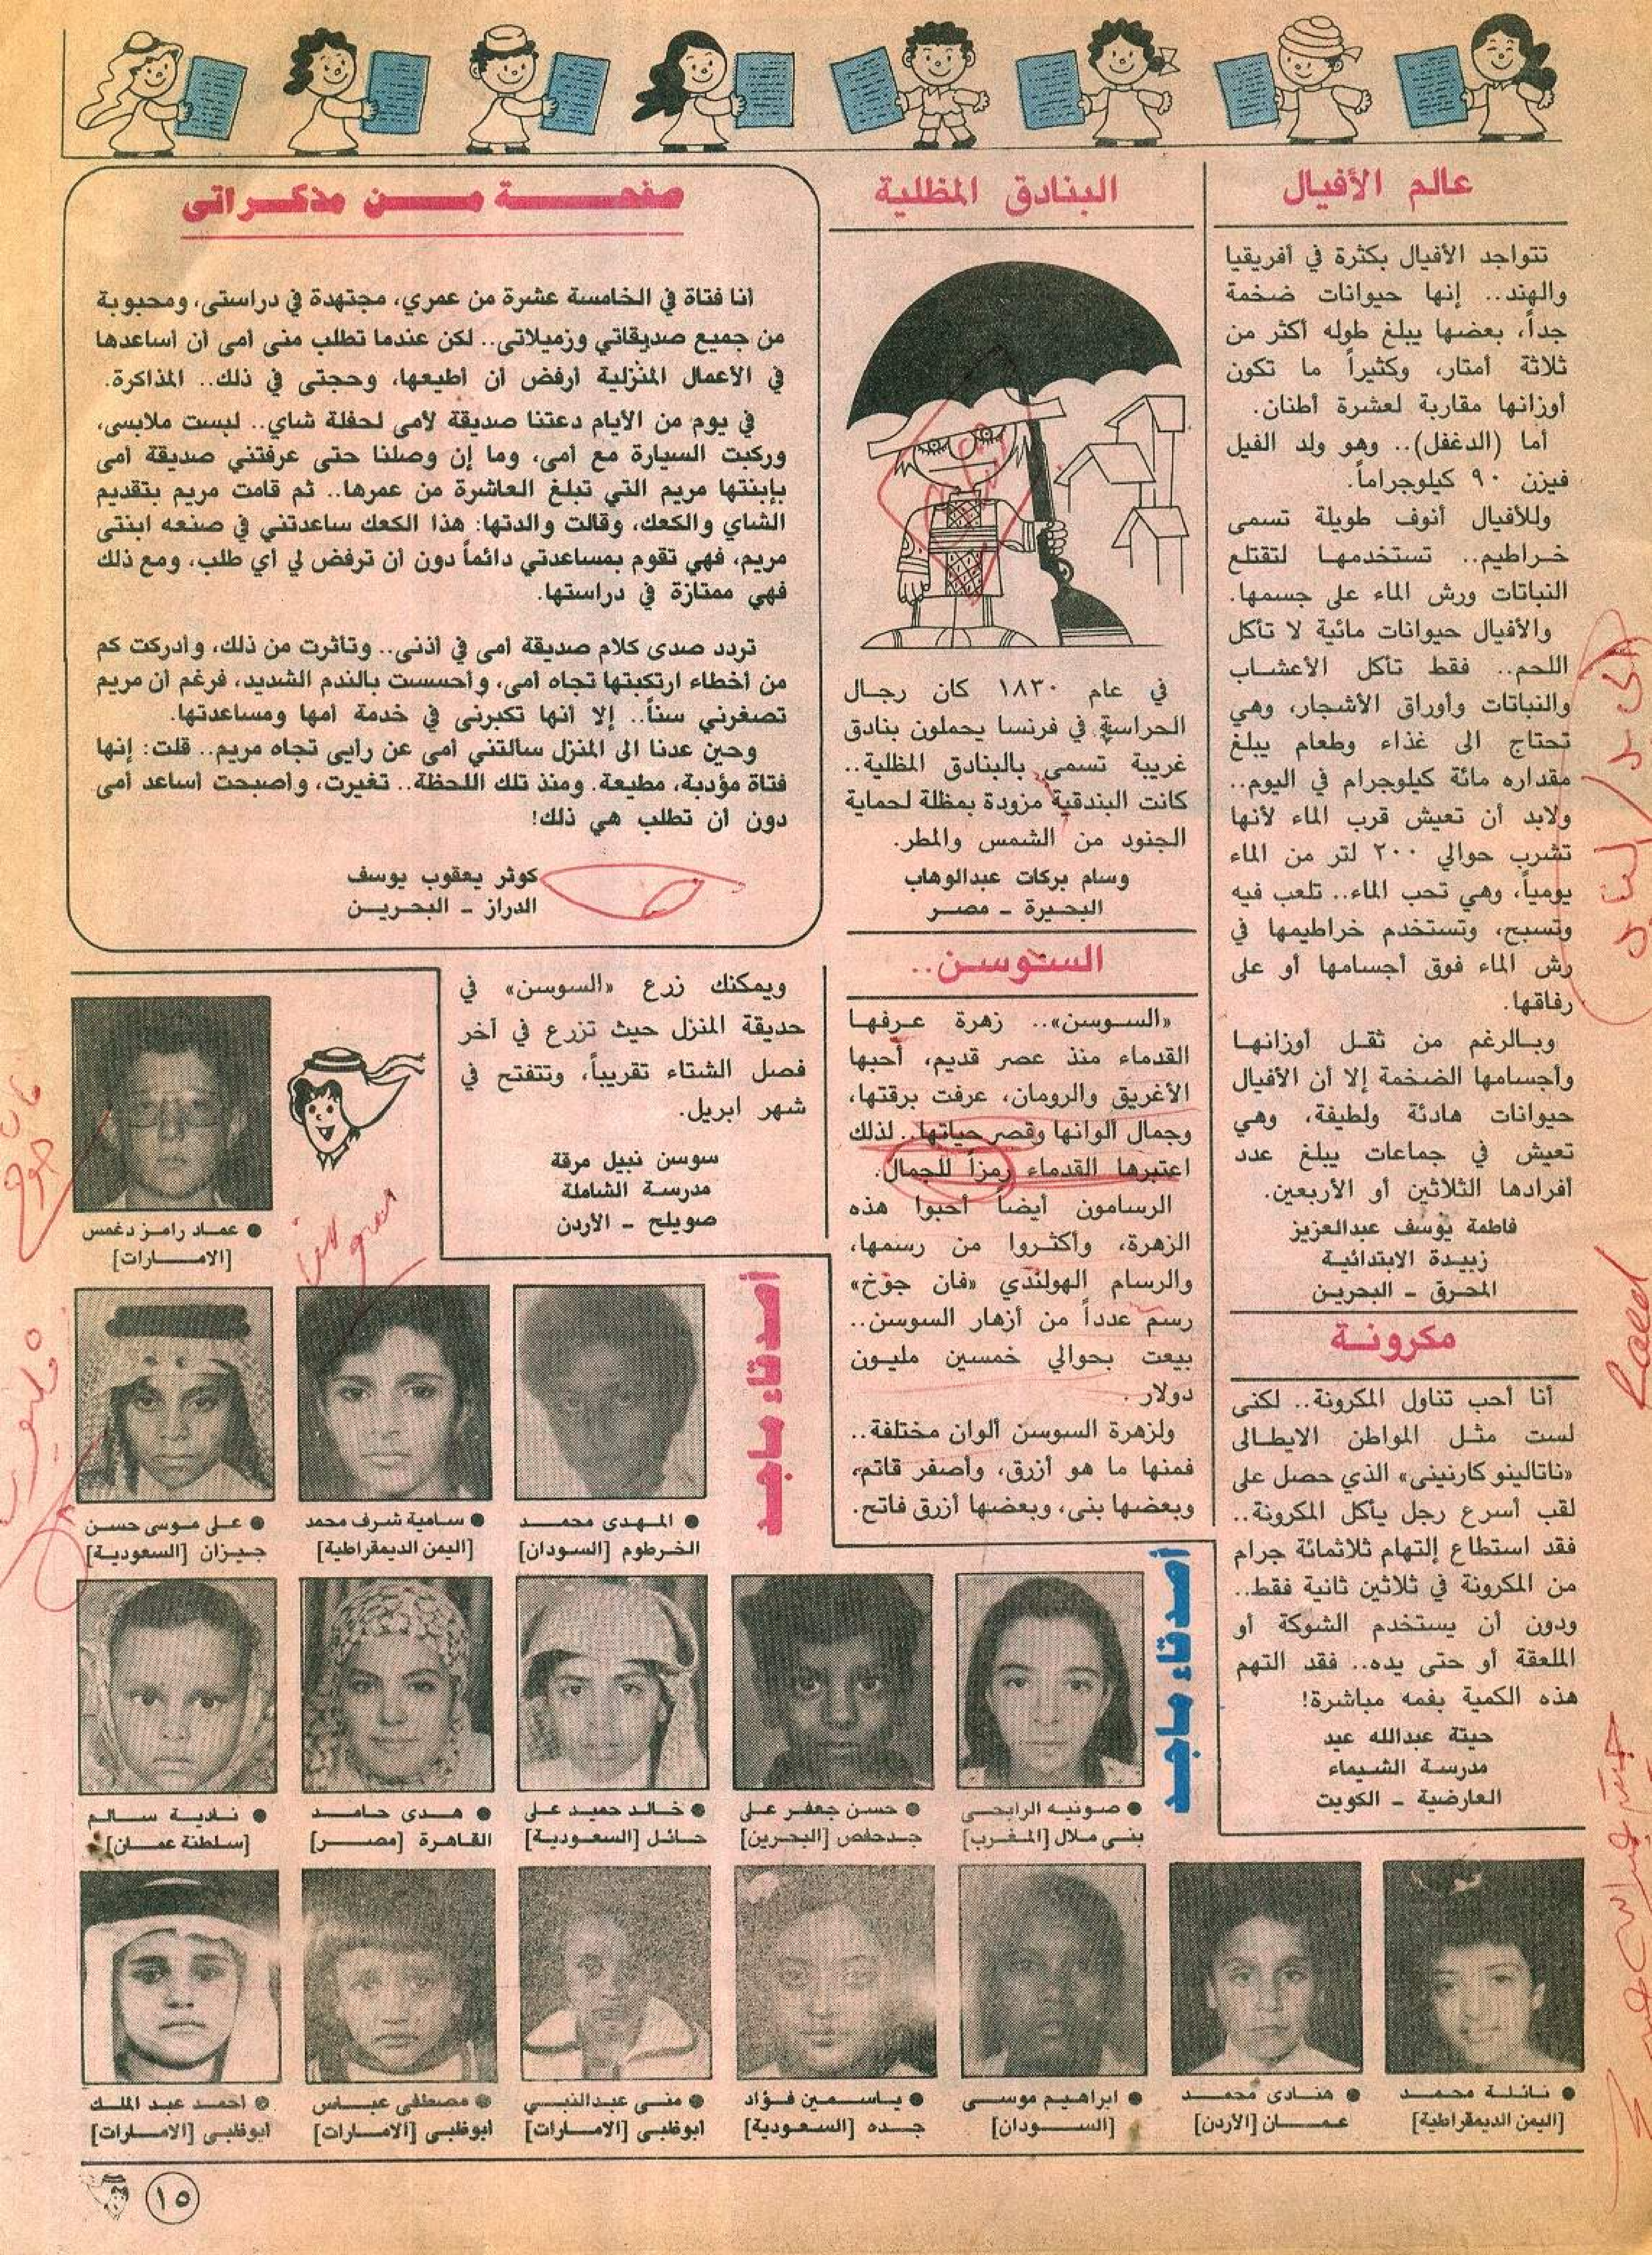 عالم الأفيال
تتواجد الأفيال بكثرة في أفريقيا
والهند.. إنها حيوانات ضخمة
جداً، بعضها يبلغ طوله أكثر من
ثلاثة أمتار، وكثيراً ما تكون
أوزانها مقاربة لعشرة أطنان.
أما (الدغفل).. وهو ولد الفيل
فيزن ٩٠ كيلوجراماً.
وللأفيال أنوف طويلة تسمى
خراطيم.. تستخدمها لتقتلع
النباتات ورش الماء على جسمها.
والأفيال حيوانات مائية لا تأكل
اللحم.. فقط تأكل الأعشاب
والنباتات وأوراق الأشجار، وهي
تحتاج الى غذاء وطعام يبلغ
مقداره مائة كيلوجرام في اليوم..
ولابد أن تعيش قرب الماء لأنها
تشرب حوالي ٢٠٠ لتر من الماء
يومياً، وهي تحب الماء.. تلعب فيه
وتسبح، وتستخدم خراطيمها في
رش الماء فوق أجسامها أو على
رفاقها.
وبالرغم من ثقل أوزانها
وأجسامها الضخمة إلا أن الأفيال
حيوانات هادئة ولطيفة، وهي
تعيش في جماعات يبلغ عدد
أفرادها الثلاثين أو الأربعين.
فاطمة يوسف عبدالعزيز
زبيدة الابتدائية
المحرق - البحرين
مكرونة
أنا أحب تناول المكرونة.. لكنى
لست مثل المواطن الايطالى
«ناتالينو كارنينى» الذي حصل على
لقب أسرع رجل يأكل المكرونة..
فقد استطاع إلتهام ثلاثمائة جرام
من المكرونة في ثلاثين ثانية فقط..
ودون أن يستخدم الشوكة أو
الملعقة أو حتى يده.. فقد التهم
هذه الكمية بفمه مباشرة!
حيتة عبدالله عيد
مدرسة الشيماء
العارضية - الكويت
البنادق المظلية
في عام ١٨٣٠ كان رجال
الحراسة في فرنسا يحملون بنادق
غريبة تسمى بالبنادق المظلية..
كانت البندقية مزودة بمظلة لحماية
الجنود من الشمس والمطر.
وسام بركات عبدالوهاب
البحيرة - مصر
السوسن..
«السوسن».. زهرة عرفها
القدماء منذ عصر قديم، أحبها
الأغريق والرومان، عرفت برقتها،
وجمال ألوانها وقصر حياتها.. لذلك
اعتبرها القدماء رمزاً للجمال.
الرسامون أيضاً أحبوا هذه
الزهرة، وأكثروا من رسمها،
والرسام الهولندي «فان جوخ»
رسم عدداً من أزهار السوسن..
بيعت بحوالي خمسين مليون
دولار.
ولزهرة السوسن ألوان مختلفة..
فمنها ما هو أزرق، وأصفر قاتم،
وبعضها بنى، وبعضها أزرق فاتح.
ويمكنك زرع «السوسن» في
حديقة المنزل حيث تزرع في آخر
فصل الشتاء تقريباً، وتتفتح في
شهر ابريل.
سوسن نبيل مرقة
مدرسة الشاملة
صويلح - الأردن
صفحة من مذكراتى
أنا فتاة في الخامسة عشرة من عمري، مجتهدة في دراستى، ومحبوبة
من جميع صديقاتي وزميلاتى.. لكن عندما تطلب منى أمى أن أساعدها
في الأعمال المنزلية أرفض أن أطيعها، وحجتى في ذلك.. المذاكرة.
في يوم من الأيام دعتنا صديقة لأمى لحفلة شاي.. لبست ملابسى،
وركبت السيارة مع أمى، وما إن وصلنا حتى عرفتني صديقة أمى
بإبنتها مريم التي تبلغ العاشرة من عمرها.. ثم قامت مريم بتقديم
الشاي والكعك، وقالت والدتها: هذا الكعك ساعدتني في صنعه ابنتى
مريم، فهي تقوم بمساعدتي دائماً دون أن ترفض لي أي طلب، ومع ذلك
فهي ممتازة في دراستها.
تردد صدى كلام صديقة أمى في أذنى.. وتأثرت من ذلك، وأدركت كم
من أخطاء ارتكبتها تجاه أمى، وأحسست بالندم الشديد، فرغم أن مريم
تصغرني سناً.. إلا أنها تكبرنى في خدمة أمها ومساعدتها.
وحين عدنا الى المنزل سألتني أمى عن رأيى تجاه مريم.. قلت: إنها
فتاة مؤدبة، مطيعة. ومنذ تلك اللحظة.. تغيرت، وأصبحت أساعد أمى
دون أن تطلب هي ذلك!
كوثر يعقوب يوسف
الدراز - البحرين
أصدقاء ماجد
● عماد رامز دغمس
[الامارات]
● المهدى محمد
الخرطوم [السودان]
● سامية شرف محمد
[اليمن الديمقراطية]
● على موسى حسن
جيزان [السعودية]
أصدقاء ماجد
● صونيه الرابحى
بنى ملال [المغرب]
● حسن جعفر على
جدحفص [البحرين]
● خالد حميد على
حائل [السعودية]
● هدى حامد
القاهرة [مصر]
● نادية سالم
[سلطنة عمان]
● نائلة محمد
[اليمن الديمقراطية]
● هنادى محمد
عمان [الأردن]
● ابراهيم موسى
[السودان]
● ياسمين فؤاد
جده [السعودية]
● منى عبدالنبي
أبوظبى [الامارات]
● مصطفى عباس
أبوظبى [الامارات]
● احمد عبد الملك
أبوظبى [الامارات]
١٥
Raed